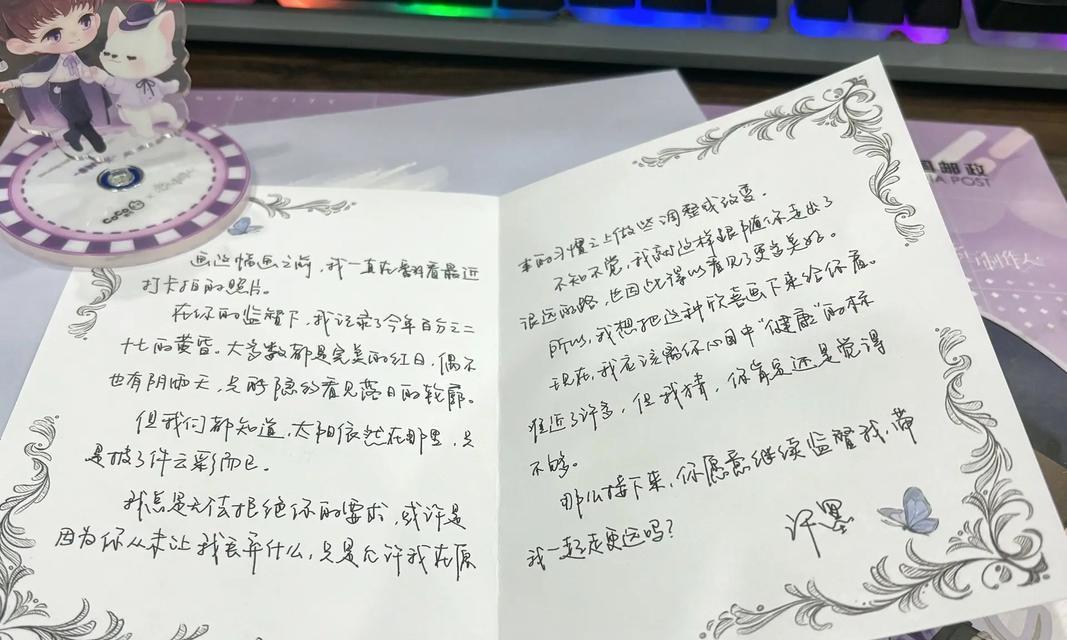 画这幅画之前，我一直在翻看最近
打卡拍的照片。
在你的监督下，我记录了今年百分之二
十七的黄昏。大多数都是完美的红日，偶尔
也有阴雨天，只能隐约看见落日的轮廓。
但我们都知道，太阳依然在那里，只
是披了件云彩而已。
我总是无法拒绝你的要求，或许是
因为你从未让我丢弃什么，只是允许我在原
本的习惯之上做些调整或改变。
不知不觉，我就这样跟随你走出了
很远的路，也因此得以看见了更多美好。
所以，我想把这种欣喜画下来给你看。
现在，我应该离你心目中“健康”的标
准近了许多，但我猜，你肯定还是觉得
不够。
那么接下来，你愿意继续监督我，带
我一起走更远吗？
许墨
CoCo
邮政
POST
制作人